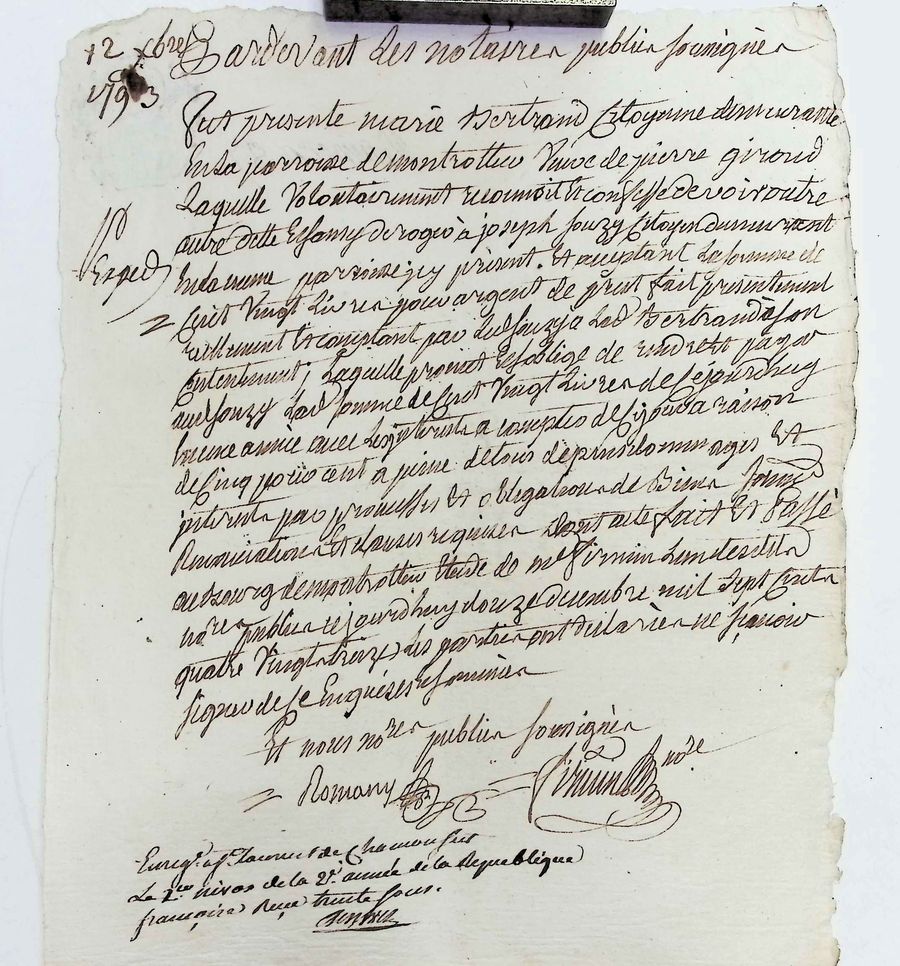 12 xbre
1793
Pardevant les notaires publics soussignés
Fut presente marie Bertrand Citoyenne demeurante
En la parroisse de montrottier Veuve de pierre giroud
Laquelle Volontairement reconnoit et confesse devoir outre
autre dette Et sans y deroger à joseph souzy Citoyen demeurant
En la meme parroisse icy present. Et acceptant La somme de
Cent Vingt Livres pour argent de pret fait presentement
reellement et comptant par led souzy a lad Bertrand à son
Contentement, Laquelle promet Et soblige de rendre et payer
aud souzy Lad somme de Cent Vingt Livres de Cejourdhuy
En une année avec Les interets a compter de Ce jour a raison
de Cinq pour cent a peine de tous depens dommages Et
interets par promesses Et obligations de Biens
Renonciations Et clauses requises dont acte fait Et Passé
au Bourg de montrottier Etude de me Firmin Lun desdits
nores publics cejourdhuy douze decembre mil Sept Cents
quatre Vingt treize, Les parties ont declarées ne sçavoir
signer de Ce Enquises Et sommées
Exped
Et nous nores publics soussignés
Romany
Firmin nore
Enregt. a St. Laurent de Chamousset
Le 2 nivos de la 2e. année de la Republique
françoise Reçu trente sous.